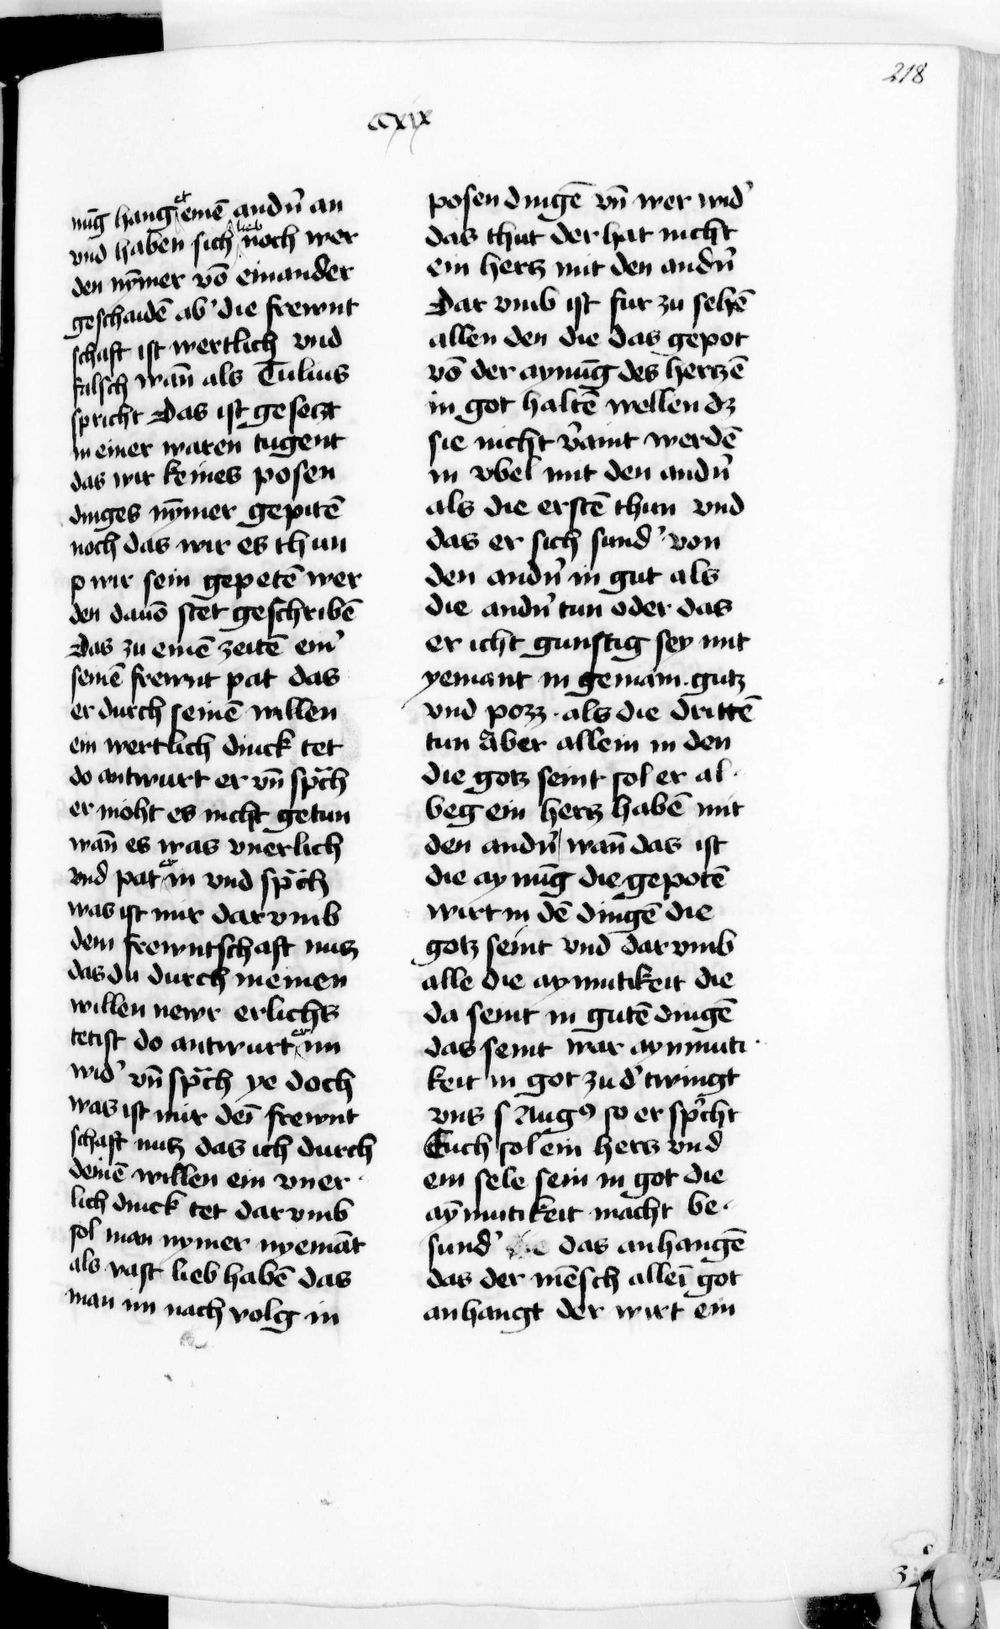 218
ccxix
nūg hang er einē andn̄ an
vnd haben sich lieb noch wer
den nȳmer vō einander
geschaidē ab' die frewnt
schaft ist wertlich vnd
falsch wān als Tulius
spricht Das ist gesetzt
in einer waren tugent
das wir keines posen
dinges nȳmer gepitē
noch das wir es thun
o wir sein gepetē wer
den dauō stet geschribē
Das zu einē zeitē ein'
seinē frewnt pat das
er durch seinē willen
ein wertlich dinck tet
do antwurt er vn̄ sprach
er moht es nicht getun
wān es was vnerlich
vnd pat er in vnd sprach
was ist mir dar vmb
dein frewntschaft nutz
das du durch meinen
willen newr erlichs
tetist do antwurt er im
wid' vn̄ sprach ye doch
was ist mir dei frewnt
schaft nutz das ich durch
deinē willen ein vner
lich dinck tet dar vmb
sol man nymer nyemāt
als vast lieb habē das
man im nach volg in
posen dingē vn̄ wer wid'
das thut der hat nicht
ein hertz mit den andn̄
Dar vmb ist fur zu sehē
allen den die das gepot
vō der aynūg des hertzē
in got haltē wellen dz
sie nicht v'aint werdē
in vbel mit den andn̄
als die erstē thun vnd
das er sich sund' von
den andn̄ in gut als
die andn̄ tun oder das
er icht gunstig sey mit
yemant in gemain gutz
vnd pozz · als die drittē
tun aber allein in den
die gotz seint sol er al·
beg ein hertz habē mit
den andn̄ wān das ist
die aynūg die gepotē
wirt in dē dingē die
gotz seint vnd dar vmb
alle die aynmutikeit die
da seint in gutē dingē
das seint war aynmuti·
keit in got zu d' twingt
vns s Aug9 so er sp'cht
Euch sol ein hertz vnd
ein sele sein in got die
aȳmutikeit macht be·
sund' die das anhangē
das der mēsch allei got
anhangt der wirt ein